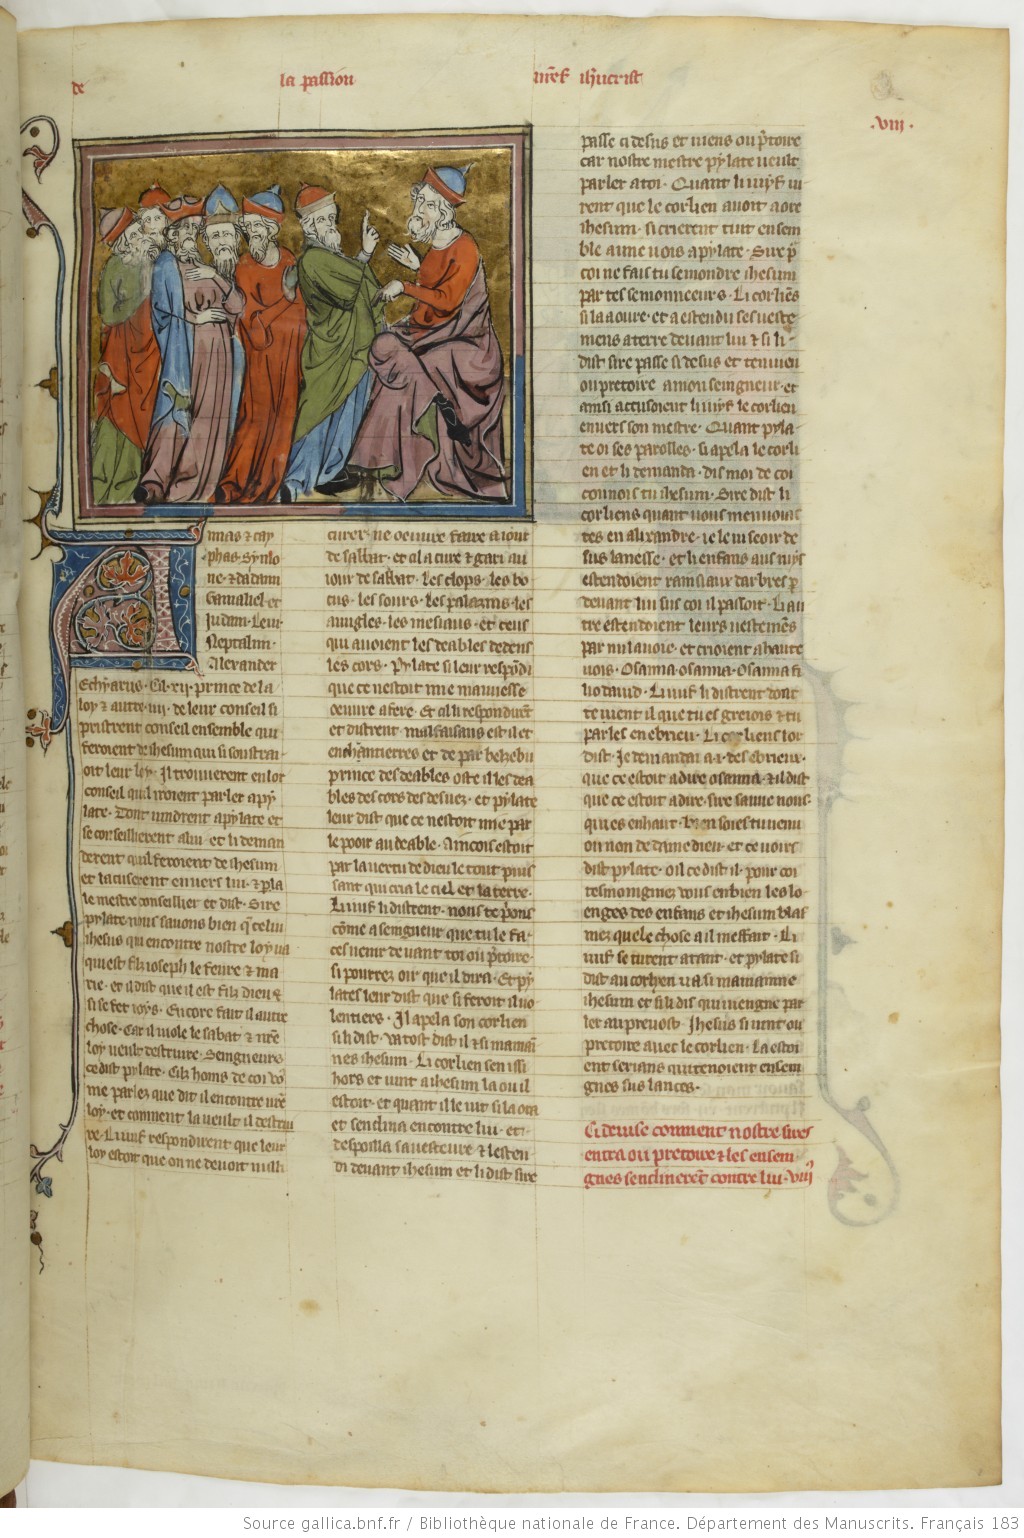 de la passion nr̃e ihũcrist
·viij·
Annas & cay
phas· Synlo
ne· & dadann
Gamaliel· et
Judam· Leui·
Neptalim·
Alexander
& chyarus· Cil· xij· prince de la
loy & autre· iiij· de leur conseil si
pristrent conseil ensemble qu'il
feroient de ihesum qui si soustrai
oit leur loy· Il trouuerent en lor
conseil quil iroient parler a py
late· Dont uindrent a pylate et
se conseillierent a lui· et li deman
derent quil feroient de ihesum
et lacuserent enuers lui· & p̱la
le mestre conseillier et dist· Sire
pylate nous sauons bien q̃ celui
ihesus qui encontre nostre loy ua
qui est filz ioseph le feure & ma
rie· et il dist que il est filz dieu &
si se fet roys· Encore fait il autre
chose· Car il uiole le sabat & nr̃e
loy ueult destruire· Seingneurs
ce dist pylate· Cilz homs de coi cõ
me parlez que dit il encontre ur̃e
loy· et comment la ueult il destrui
re· Li iuif respondirent que leur
loy estoit que on ne deuoit nulli
curer· ne oeuure faire a iour
de sabbat· et il a cure & gari au
iour de sabbat· les clops· les bo
cus· les sours· les palazins· les
auugles· les mesiaus· et ceus
qui auoient les deables dedens
les cors· Pylate si leur respõdi
que ce nestoit mie mauuesse
oeuure a fere· Et cil li respondirẽt
et distrent malfaisans est il et
enchantierres et de par belzebu
prince des deables oste il les dea
bles des cors des desuez· et pylate
leur dist que ce nestoit mie par
le pooir au deable· Aincois estoit
par la uertu de dieu le tout puis
sant qui cria le ciel et la terre·
Li iuif li distrent· nous te prions
cõme a seingneur que tu le fa
ces uenir deuant toi ou p̃toire·
si pourrez oir que il dira· Et py
lates leur dist que si feroit il uo
lentiers· Il apela son corlien
si li dist· Va tost dist il & si mamai
nes ihesum· Li corlien sen issi
hors et uint a ihesum la ou il
estoit· et quant il le uit si la ora
et senclina encontre lui· et
despoilla sa uesteure & lesten
di deuant ihesum et li dist sire
passe ci desus et uiens ou p̃toire
car nostre mestre pylate ueult
parler a toi· Quant li iuyf ui
rent que le corlien auoit aore
ihesum· si crierent tuit ensem
ble a une uois a pylate· Sire p̱
coi ne fais tu semondre ihesum
par tes semonceurs· Li corliẽs
si la aoure· et a estendu ses ueste
mens a terre deuant lui & si li
dist sire passe si desus et ten uien
ou pretoire a mon seingneur· et
ainsi accusoient li iuyf le corlien
enuers son mestre· Quant pyla
te oi ses parolles· si apela le corli
en et li demanda· dis moi de coi
connois tu ihesum· Sire dist li
corliens quant uous menuoias
tes en alixandre· ie le ui seoir de
sus lanesse· et li enfans aus iuys
estendoient rainsiaux darbres p̱
deuant lui sus coi il passoit· Li au
tre estendoient leurs uestemẽs
par mi la uoie· et crioient a haute
uois· Osanna· osanna· Osanna fi
lio dauid· Li iuif li distrent dont
te uient il que tu es greiois & tu
parles en ebrieu· Li corliens lor
dist· Je demandai a· i· des ebrieux·
que ce estoit a dire osanna· & il dist
que ce estoit a dire· sire sauue nous·
qui es en haut· bien soies tu uenu
ou non de dame dieu· et ce uoirs
dist pylate· oil ce dist il· pour coi
tesmoingniez uous en bien les lo
enges des enfans et ihesum blas
mez quele chose a il meffait· Li
iuif se turent atant· et pylate si
dist au corlien ua si mamainne
ihesum et si li dis qui uiengne par
ler au preuost· Ihesus si uint ou
pretoire auec le corlien· La estoi
ent serians qui tenoient ensein
gnes sus lances·
Ci deuise comment nostre sires
entra ou pretoire & les ensein
gnes senclinerẽt contre lui· viiij
Source gallica.bnf.fr / Bibliothèque nationale de France. Département des Manuscrits. Français 183